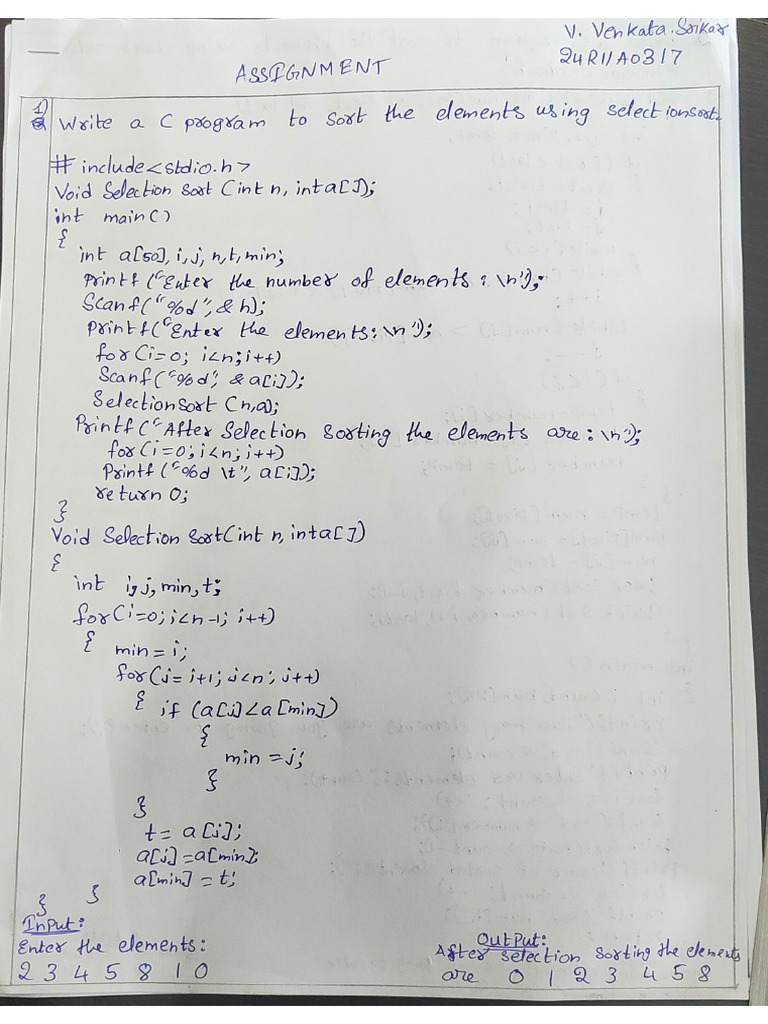 V. Venkata.Srikar
24R11A0317
ASSIGNMENT
1)
Write a C program to sort the elements using selectionsort.
# include<stdio.h>
Void Selection Sort (int n, int a[]);
int main()
{
int a[50], i, j, n, t, min;
Printf ("Enter the number of elements : \n");
Scanf("%d", & n);
Printf("Enter the elements: \n");
for(i=0; i<n; i++)
Scanf("%d", & a[i]);
Selection Sort (n,a);
Printf("After Selection Sorting the elements are: \n");
for(i=0; i<n; i++)
Printf ("%d \t", a[i]);
return 0;
}
Void Selection Sort(int n, int a[])
{
int i, j, min, t;
for(i=0; i<n-1; i++)
{ min = i;
for(j= i+1; j<n; j++)
{ if (a[j]<a[min])
{
min = j;
}
}
t= a[j];
a[j] =a[min];
a[min] = t;
} }
Input:
Enter the elements:
2 3 4 5 8 1 0
Output:
After selection sorting the elements
are 0 1 2 3 4 5 8